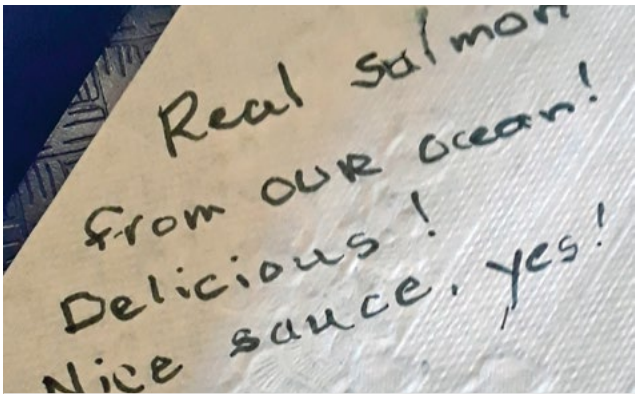 Real salmon
from OUR ocean!
Delicious!
Nice sauce, yes!